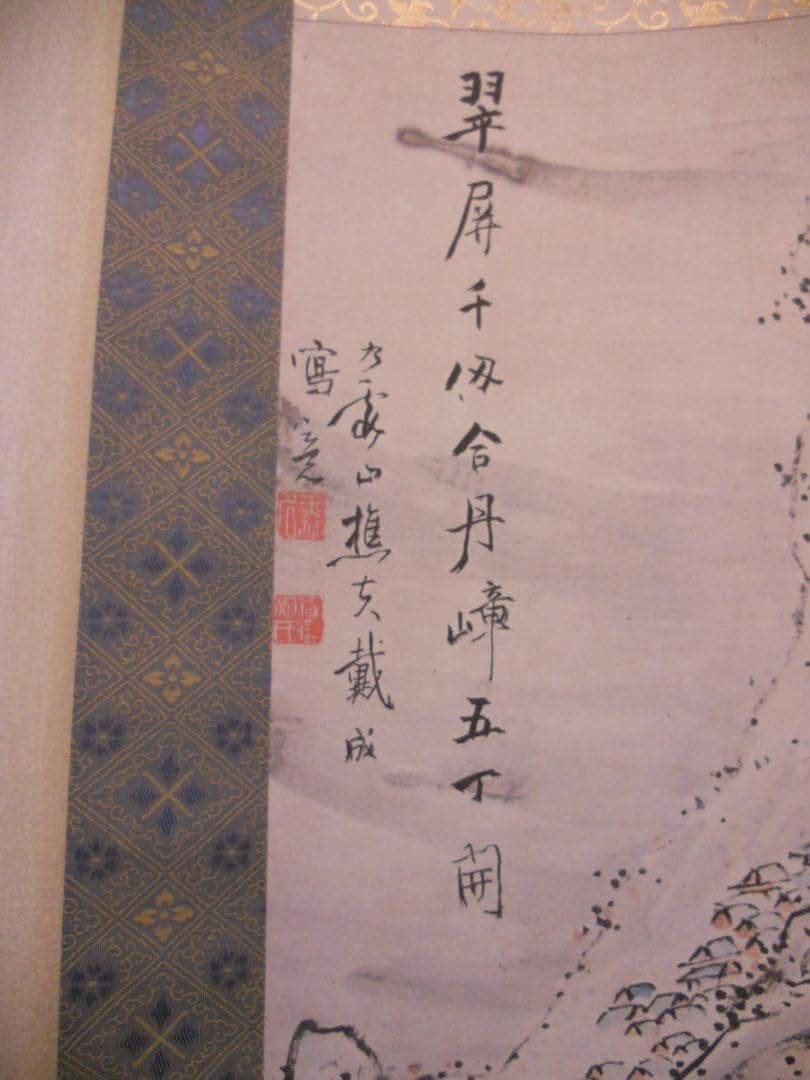 翠屏千仞合丹嶂五丁開
九霞山樵夫戴成
寫意